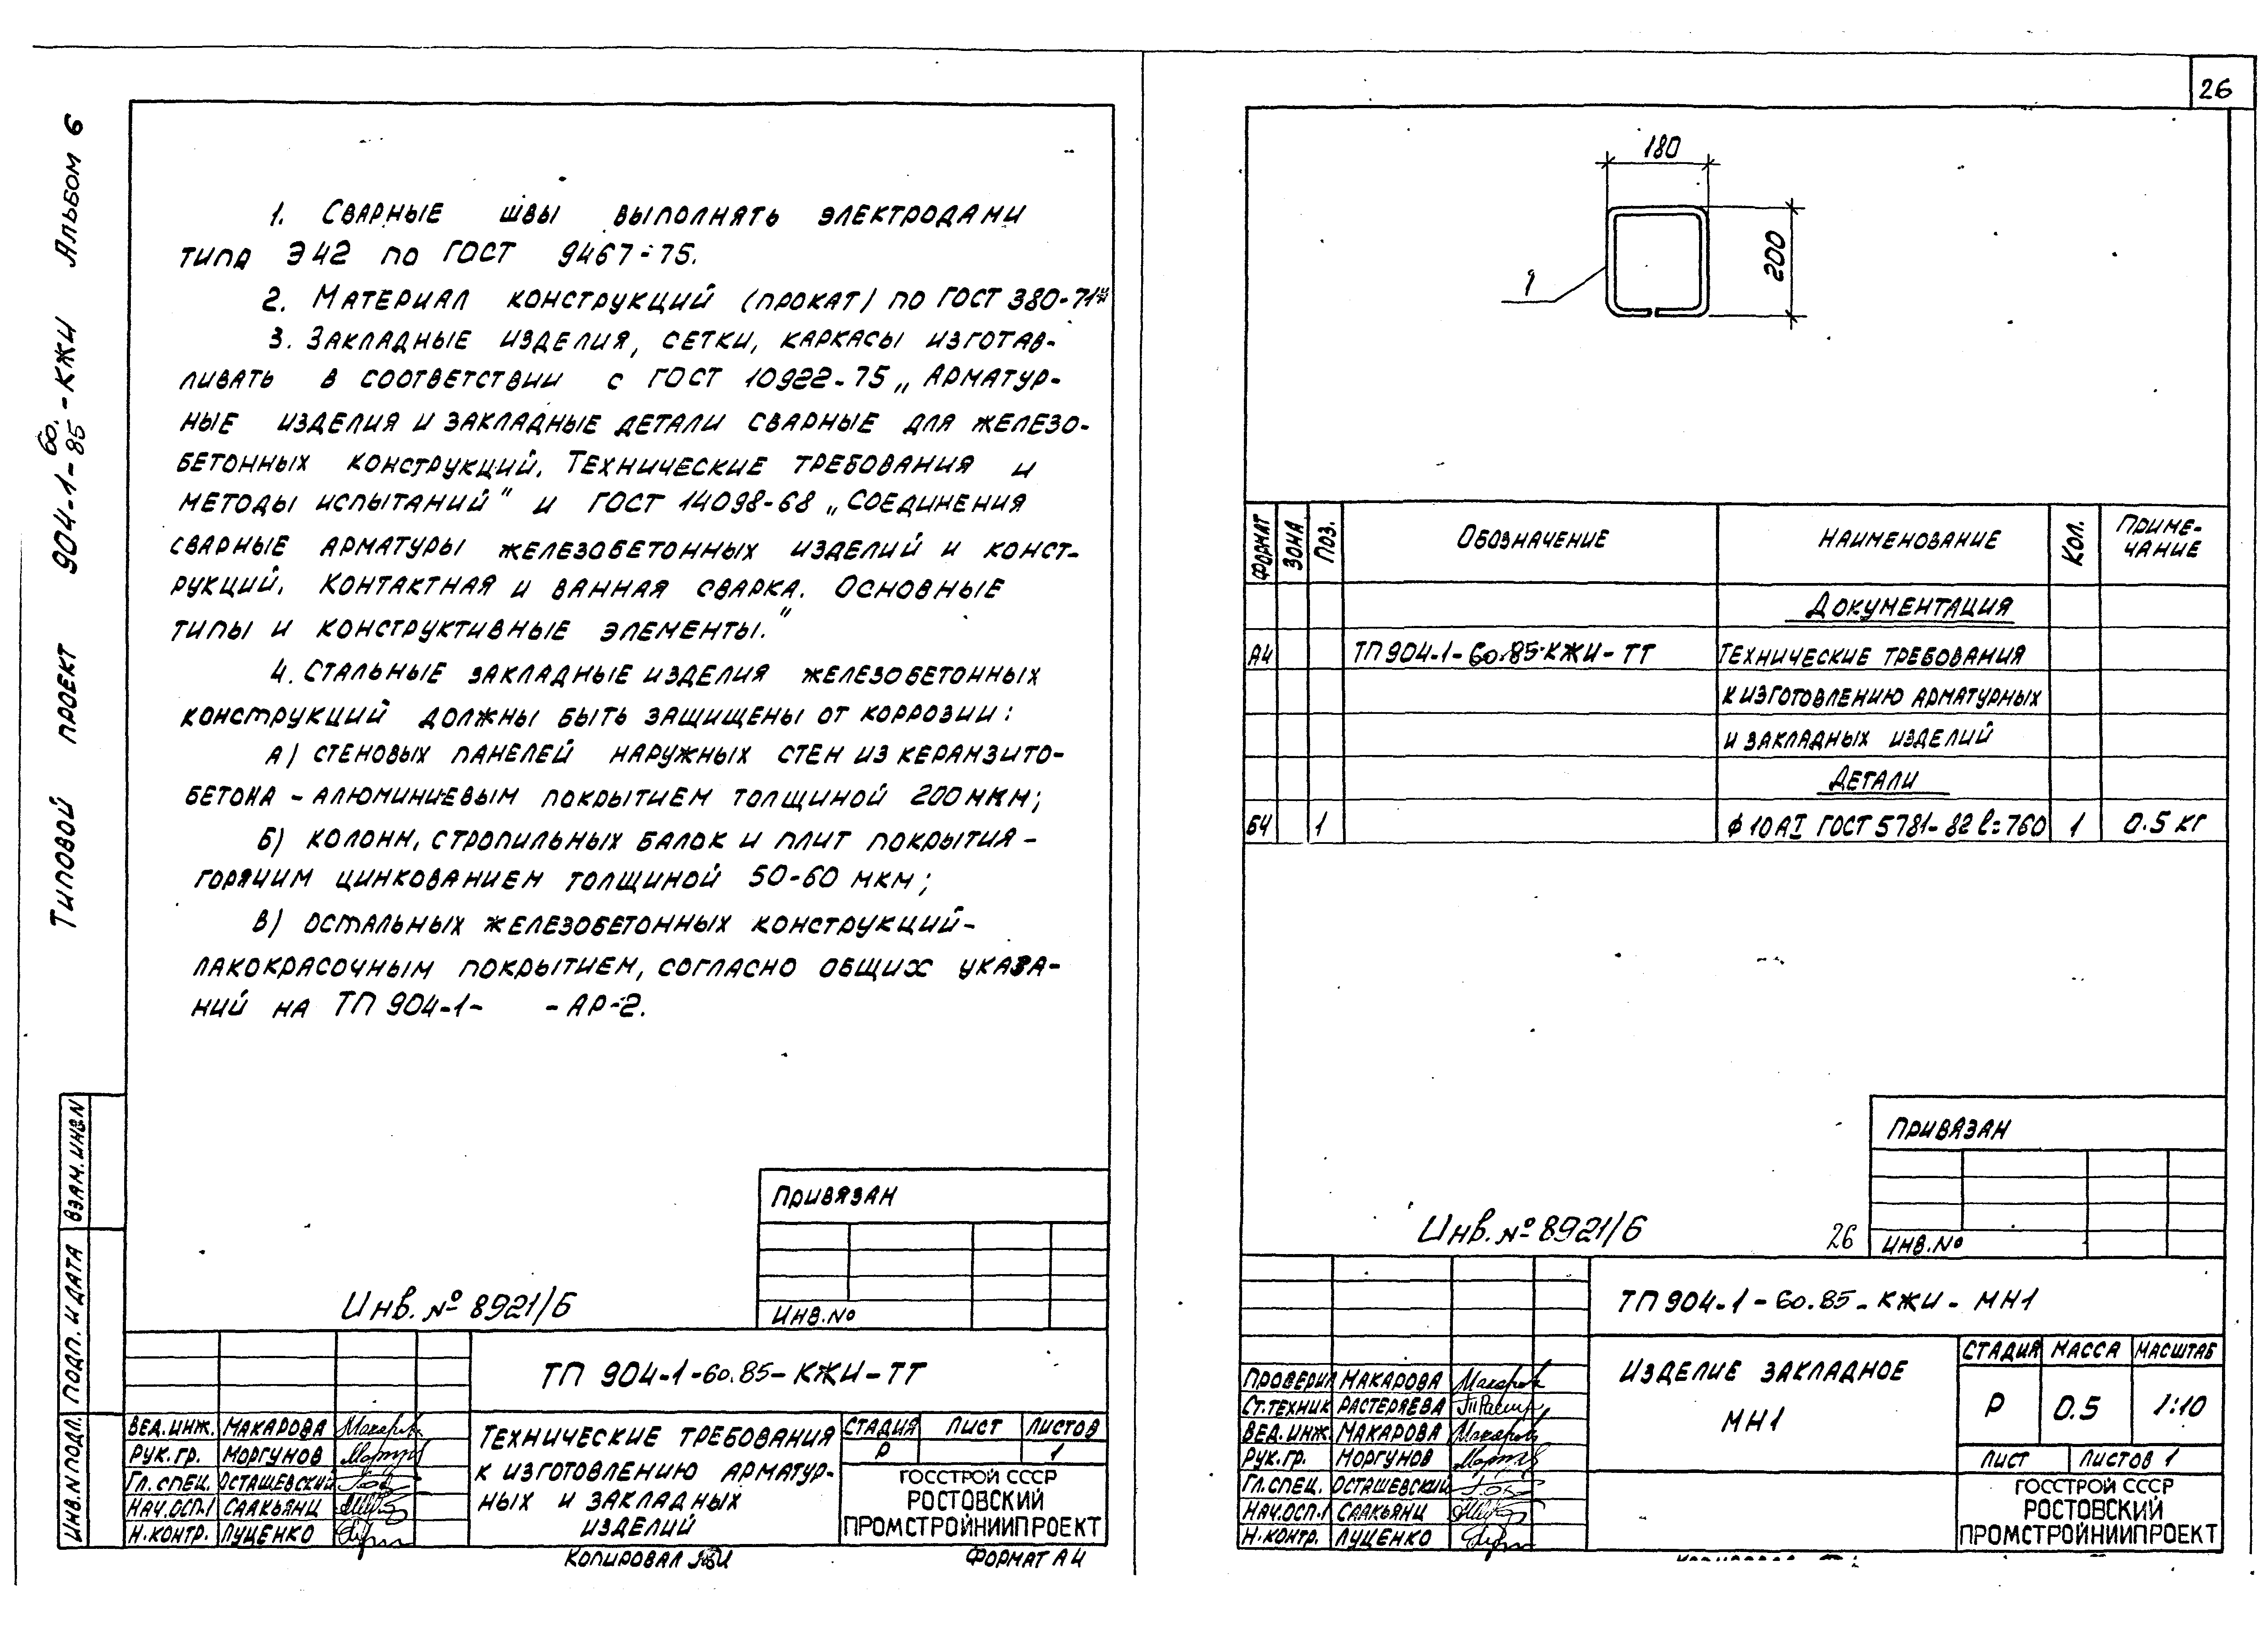 26
Типовой проект 904-1-60.85-КЖИ Альбом 6
1. Сварные швы выполнять электродами
типа Э42 по ГОСТ 9467-75.
2. Материал конструкций (прокат) по ГОСТ 380-71*
3. Закладные изделия, сетки, каркасы изготав-
ливать в соответствии с ГОСТ 10922-75 „Арматур-
ные изделия и закладные детали сварные для железо-
бетонных конструкций. Технические требования и
методы испытаний" и ГОСТ 14098-68 „Соединения
сварные арматуры железобетонных изделий и конст-
рукций. Контактная и ванная сварка. Основные
типы и конструктивные элементы."
4. Стальные закладные изделия железобетонных
конструкций должны быть защищены от коррозии:
а) стеновых панелей наружных стен из керамзито-
бетона - алюминиевым покрытием толщиной 200 мкм;
б) колонн, стропильных балок и плит покрытия -
горячим цинкованием толщиной 50-60 мкм;
в) остальных железобетонных конструкций-
лакокрасочным покрытием, согласно общих указа-
ний на ТП 904-1- -АР-2.
Взам.инв.N
Подп. и дата
Инв.N подл.
Привязан
Инв.No
Инв. № 8921/6
ТП 904-1-60.85-КЖИ-ТТ
Вед.инж. Макарова
Рук.гр. Моргунов
Гл.спец. Осташевский
Нач.ОСП-1 Саакьянц
Н.контр. Луценко
Технические требования
к изготовлению арматур-
ных и закладных
изделий
Стадия Лист Листов
Р 1
ГОССТРОЙ СССР
РОСТОВСКИЙ
ПРОМСТРОЙНИИПРОЕКТ
Копировал
Формат А4
180
200
1
Формат Зона Поз. Обозначение Наименование Кол. Приме-
чание
Документация
А4 ТП 904-1-60.85-КЖИ-ТТ Технические требования
к изготовлению арматурных
и закладных изделий
Детали
БЧ 1 ϕ10АI ГОСТ 5781-82 l=760 1 0.5 кг
Привязан
Инв. № 8921/6
26
Инв.No
ТП 904-1-60.85-КЖИ-МН1
Проверил Макарова
Ст.техник Растеряева
Вед.инж Макарова
Рук.гр. Моргунов
Гл.спец. Осташевский
Нач.ОСП-1 Саакьянц
Н.контр. Луценко
Изделие закладное
МН1
Стадия Масса Масштаб
Р 0.5 1:10
Лист Листов 1
ГОССТРОЙ СССР
РОСТОВСКИЙ
ПРОМСТРОЙНИИПРОЕКТ